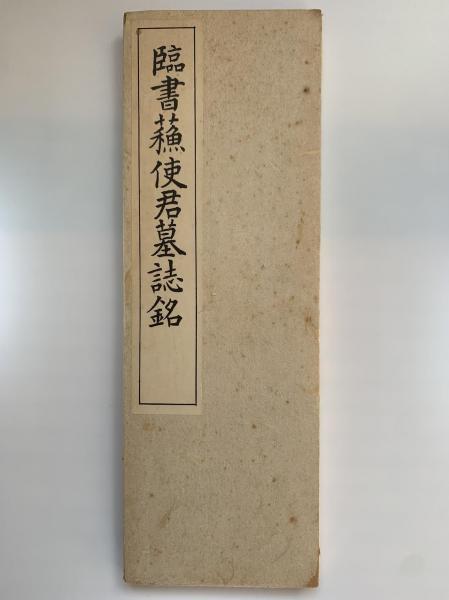 臨書蘓使君墓誌銘